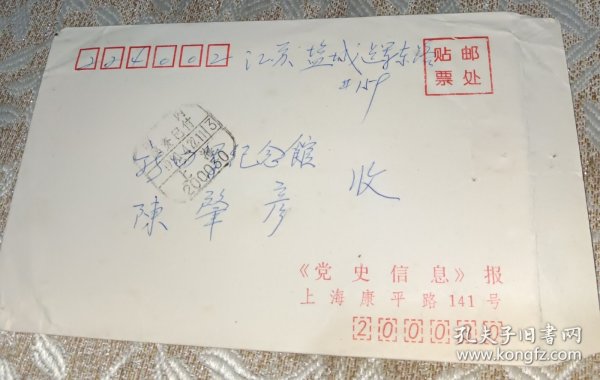 224002
江苏盐城建军东路
#159
贴邮
票处
200030
新四军纪念館
陳肇彦 收
《党史信息》报
上海康平路141号
200030
孔夫子旧书网
www.kongfz.com